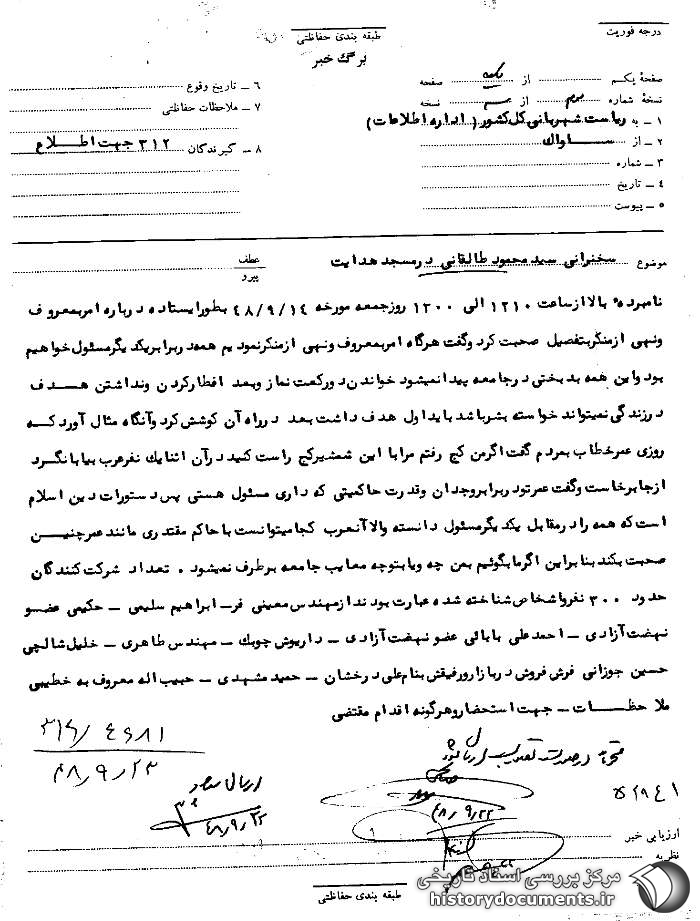 درجه فوریت
طبقه بندی حفاظتی
برگ خبر
صفحهٔ یکم از یک صفحه
نسخهٔ شماره سوم از سه نسخه
۱ ــ به ریاست شهربانی کل کشور (اداره اطلاعات)
۲ ــ از ساواک
۳ ــ شماره
۴ ــ تاریخ
۵ ــ پیوست
۶ ــ تاریخ وقوع
۷ ــ ملاحظات حفاظتی
۸ ــ گیرندگان ۳۱۲ جهت اطلاع
موضوع سخنرانی سید محمود طالقانی در مسجد هدایت
عطف
پیرو
نامبرده بالا از ساعت ۱۲۱۰ الی ۱۳۰۰ روز جمعه مورخه ۴۸/۹/۱۴ بطور ایستاده درباره امر بمعروف
ونهی از منکر بتفصیل صحبت کرد وگفت هرگاه امر بمعروف ونهی از منکر نمودیم همه در برابر یکدیگر مسئول خواهیم
بود واین همه بدبختی در جامعه پیدا نمیشود خواندن دو رکعت نماز وبعد افطار کردن ونداشتن هدف
در زندگی نمیتواند خواسته بشر باشد باید اول هدف داشت بعد در راه آن کوشش کرد وآنگاه مثال آورد که
روزی عمر خطاب بمردم گفت اگر من کج رفتم مرا با این شمشیر کج راست کنید در آن اثنا یک نفر عرب بیابانگرد
از جا برخاست وگفت عمر تو در برابر وجدان وقدرت حاکمیتی که داری مسئول هستی پس دستورات دین اسلام
است که همه را در مقابل یکدیگر مسئول دانسته والا آنعرب کجا میتوانست با حاکم مقتدری مانند عمر چنین
صحبت بکند بنابراین اگر ما بگوئیم بمن چه ویا بتوچه معایب جامعه برطرف نمیشود . تعداد شرکت کنندگان
حدود ۳۰۰ نفر واشخاص شناخته شده عبارت بودند از مهندس معینی فر ــ ابراهیم سلیمی ــ حکیمی عضو
نهضت آزادی ــ احمد علی بابائی عضو نهضت آزادی ــ داریوش چوبک ــ مهندس طاهری ــ خلیل شالچی
حسین جوزانی فرش فروش در بازار ورفیقش بنام علی درخشان ــ حمید مشهدی ــ حبیب اله معروف به خطیبی
ملاحظات ــ جهت استحضار وهرگونه اقدام مقتضی
۴۸/۹/۲۳
ارسال
۴۸/۹/۲۲
۴۸/۹/۲۲
ارزیابی خبر
نظریه
طبقه بندی حفاظتی
مرکز بررسی اسناد تاریخی
historydocuments.ir